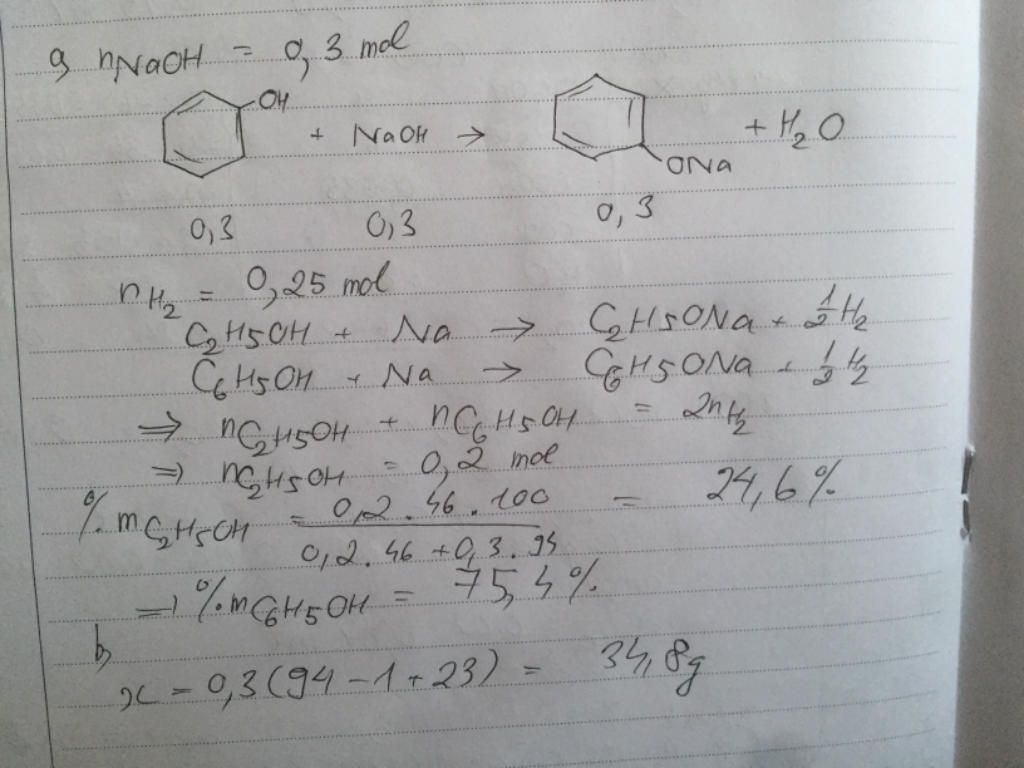 a, nNaOH = 0,3 mol
OH + NaOH → ONa + H₂O
0,3 0,3 0,3
nH₂ = 0,25 mol
C₂H5OH + Na → C₂H5ONa + 1/2 H₂
C6H5OH + Na → C6H5ONa + 1/2 H₂
⇒ nC₂H5OH + nC6H5OH = 2nH₂
⇒ nC₂H5OH = 0,2 mol
% mC₂H5OH = 0,2 . 46 . 100 / 0,2 . 46 + 0,3 . 94 = 24,6%
⇒ % mC6H5OH = 75,4%
b,
x = 0,3(94 - 1 + 23) = 34,8g